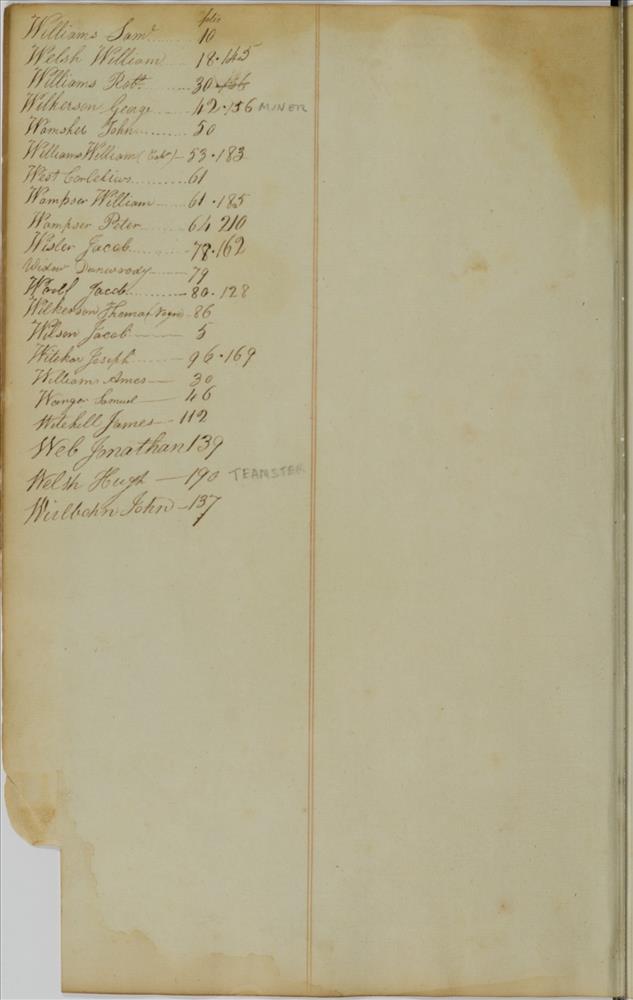 folio
Williams Sam.l 10
Welsh William 18.145
Williams Rob.t 30
Wilkerson George 42.156 MINER
Wamsher John 50
Williams William 53.183
West Cornelius 61
Wampser William 61.185
Wampser Peter 64 210
Wisler Jacob 78.162
Widow Dunwoody 79
Woolf Jacob 80.128
Wilkerson Thomas Negro 86
Wilson Jacob 5
Witeker Joseph 96.169
Williams Ames 30
Wanger Samuel 46
Witehill James 112
Web Jonathan 139
Welsh Hugh 190 TEAMSTER
John 137